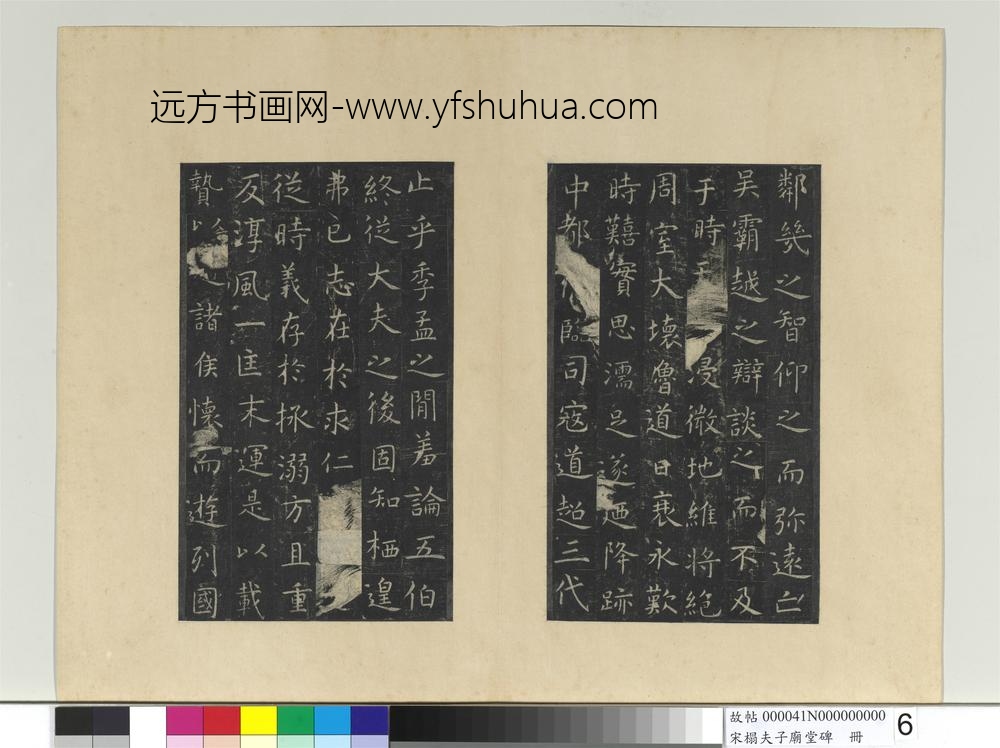 远方书画网-www.yfshuhua.com
鄰幾之智仰之而弥遠亡
吴霸越之辯談之而不及
于時浸微地維將絕
周室大壞魯道日衰永歎
時囏實思濡足遂迺降跡
中都臨司寇道超三代
止乎季孟之閒羞論五伯
終從大夫之後固知栖遑
弗已志在於求仁
從時義存於拯溺方且重
反淳風一匡末運是以載
贄以諸侯懷而遊列國
故帖 000041N000000000
宋榻夫子廟堂碑 冊
6